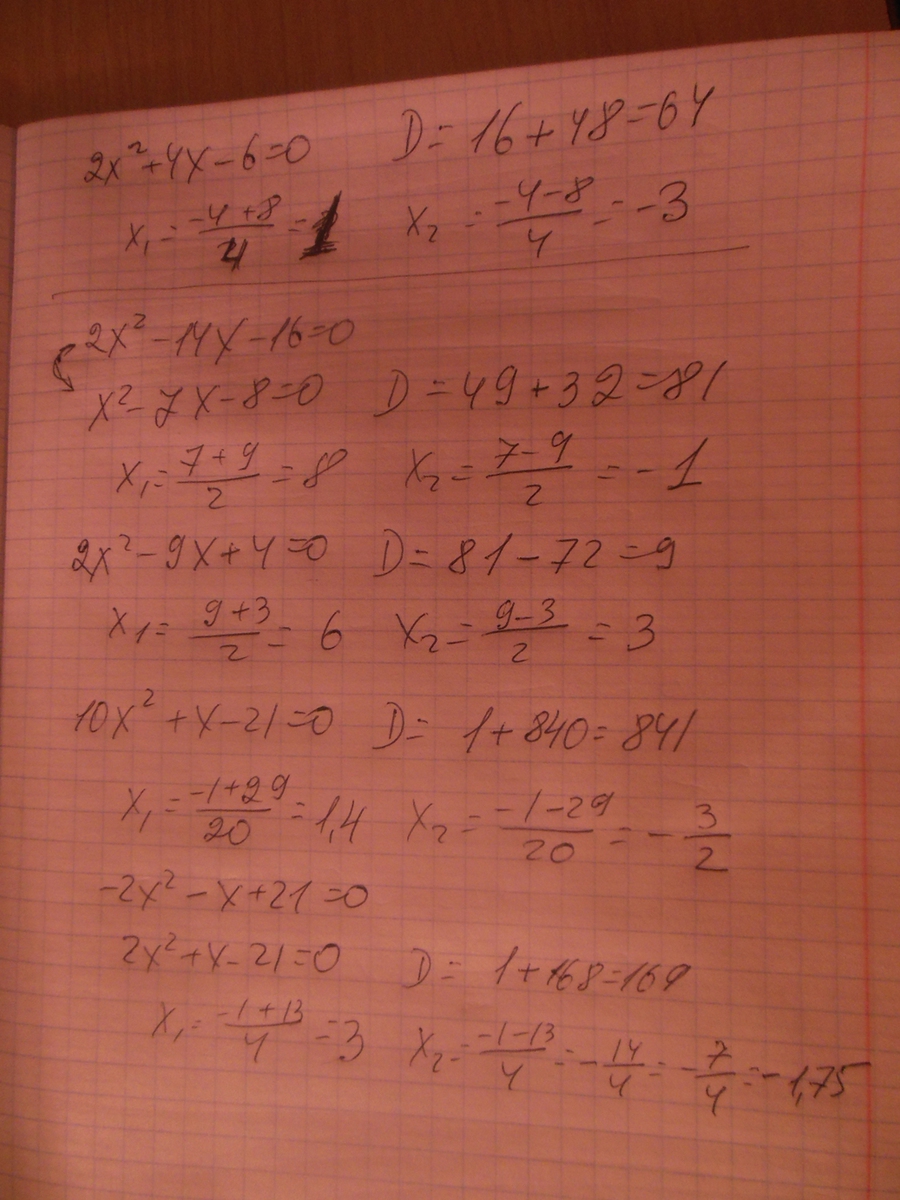 2x² + 4x - 6 = 0 D = 16 + 48 = 64
x₁ = (-4 + 8)/4 = 1 x₂ = (-4 - 8)/4 = -3
2x² - 14x - 16 = 0
x² - 7x - 8 = 0 D = 49 + 32 = 81
x₁ = (7 + 9)/2 = 8 x₂ = (7 - 9)/2 = -1
2x² - 9x + 4 = 0 D = 81 - 72 = 9
x₁ = (9 + 3)/2 = 6 x₂ = (9 - 3)/2 = 3
10x² + x - 21 = 0 D = 1 + 840 = 841
x₁ = (-1 + 29)/20 = 1,4 x₂ = (-1 - 29)/20 = -3/2
-2x² - x + 21 = 0
2x² + x - 21 = 0 D = 1 + 168 = 169
x₁ = (-1 + 13)/4 = 3 x₂ = (-1 - 13)/4 = -14/4 = -7/4 = -1,75